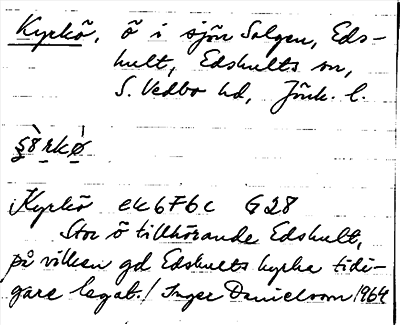 Kyrkö, ö i sjön Solgen, Eds-
hult, Edshults sn,
S. Vedbo hd, Jönk. l.
Kyrkö ek 6F6c G28
Stor ö tillhörande Edshult,
på vilken gd Edshults kyrka tidi-
gare legat. / Inger Danielsson 1964